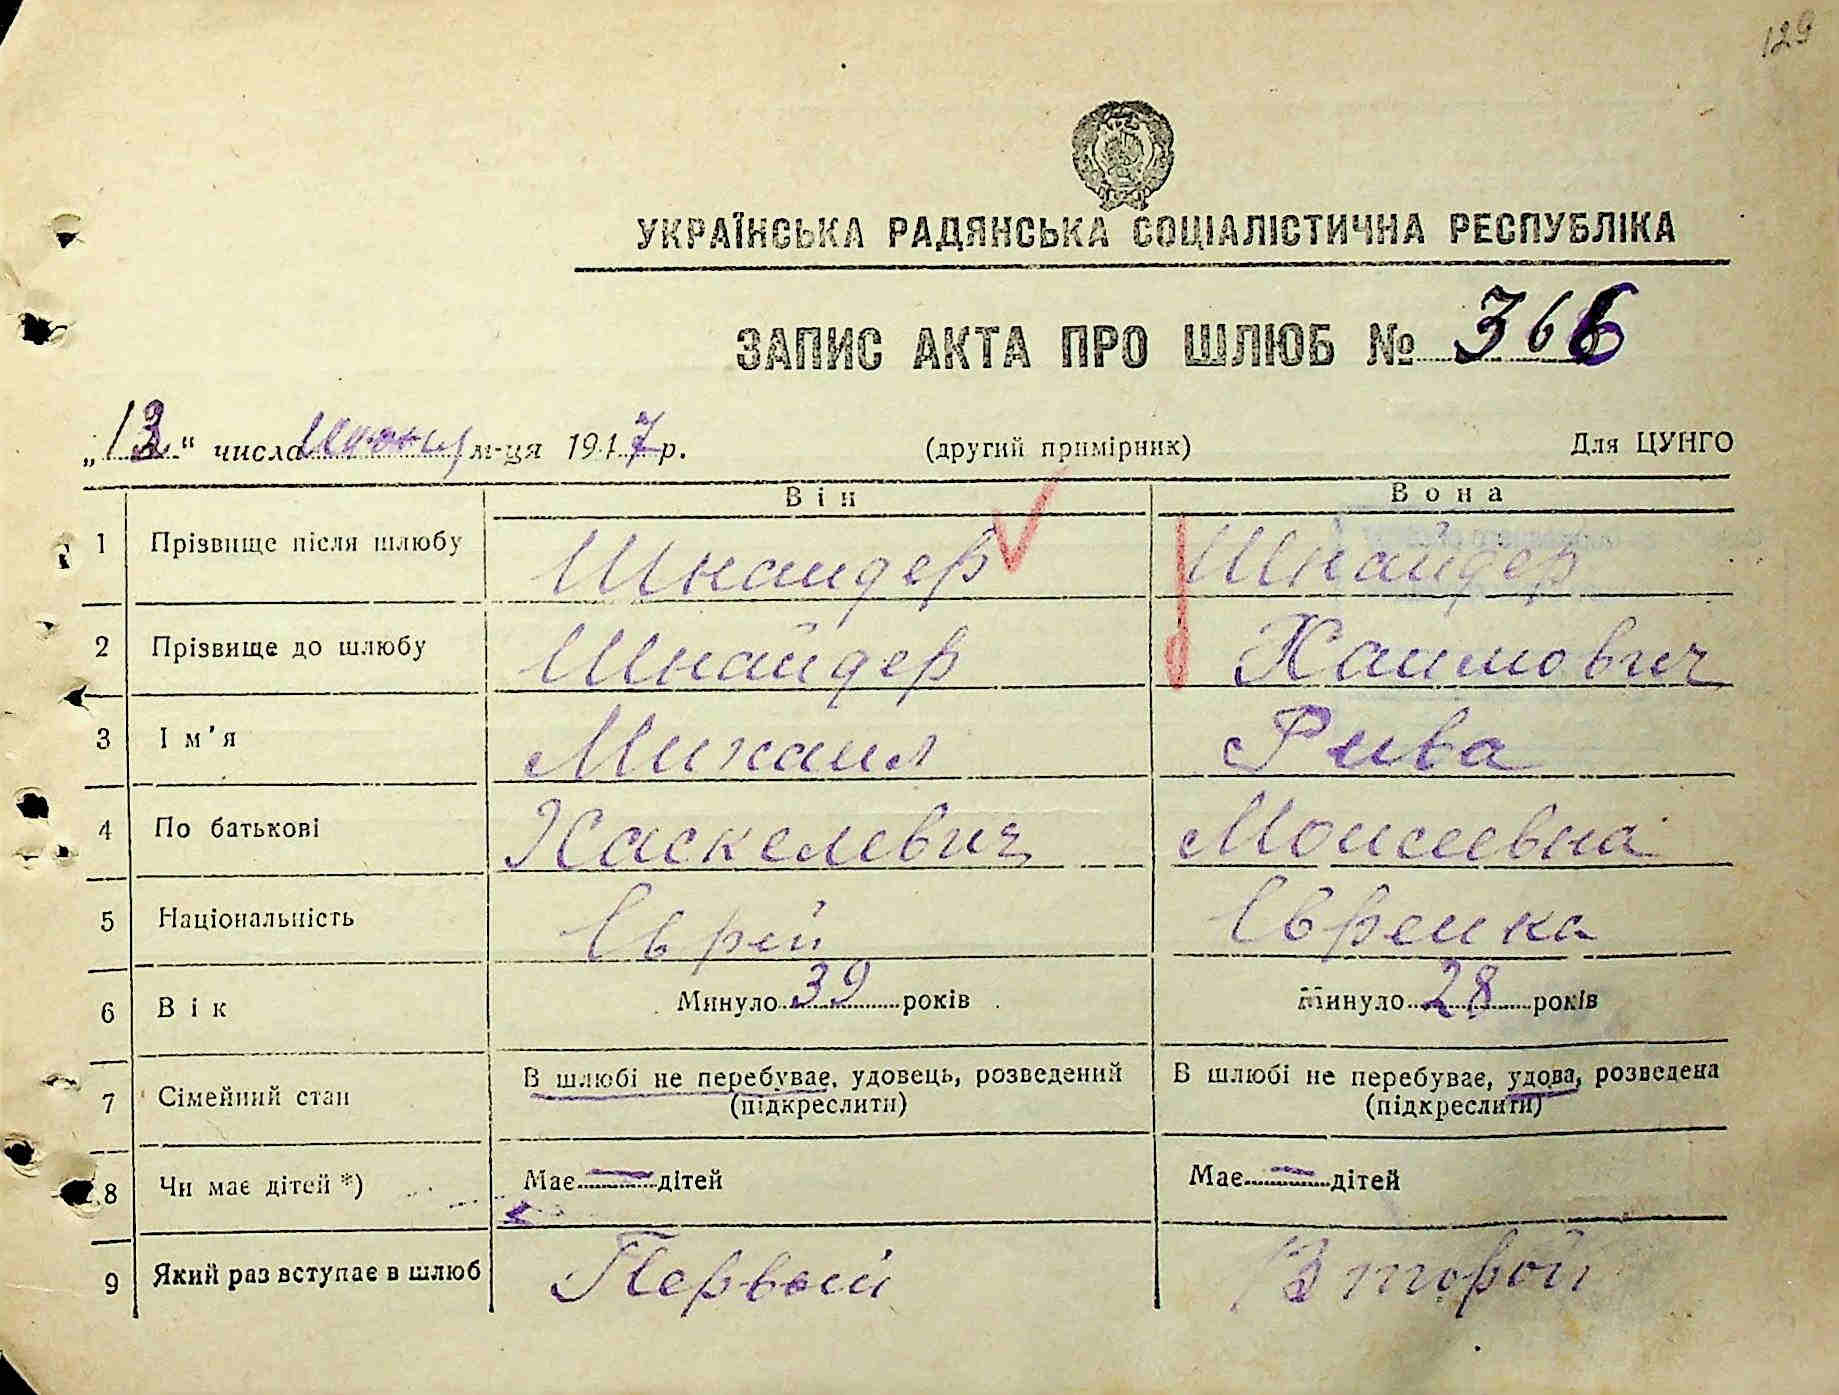 129
УКРАЇНСЬКА РАДЯНСЬКА СОЦІАЛІСТИЧНА РЕСПУБЛІКА
ЗАПИС АКТА ПРО ШЛЮБ № 366
„13“ числа июня м-ця 1947 р. (другий примірник) Для ЦУНГО
Він Вона
1 Прізвище після шлюбу Шнайдер Шнайдер
2 Прізвище до шлюбу Шнайдер Хаимович
3 Ім'я Михаил Рива
4 По батькові Хаскелевич Моисеевна
5 Національність Еврей Еврейка
6 Вік Минуло 39 років Минуло 28 років
7 Сімейний стан В шлюбі не перебуває, удовець, розведений (підкреслити) В шлюбі не перебуває, удова, розведена (підкреслити)
8 Чи має дітей *) Має — дітей Має — дітей
9 Який раз вступає в шлюб Первый Второй